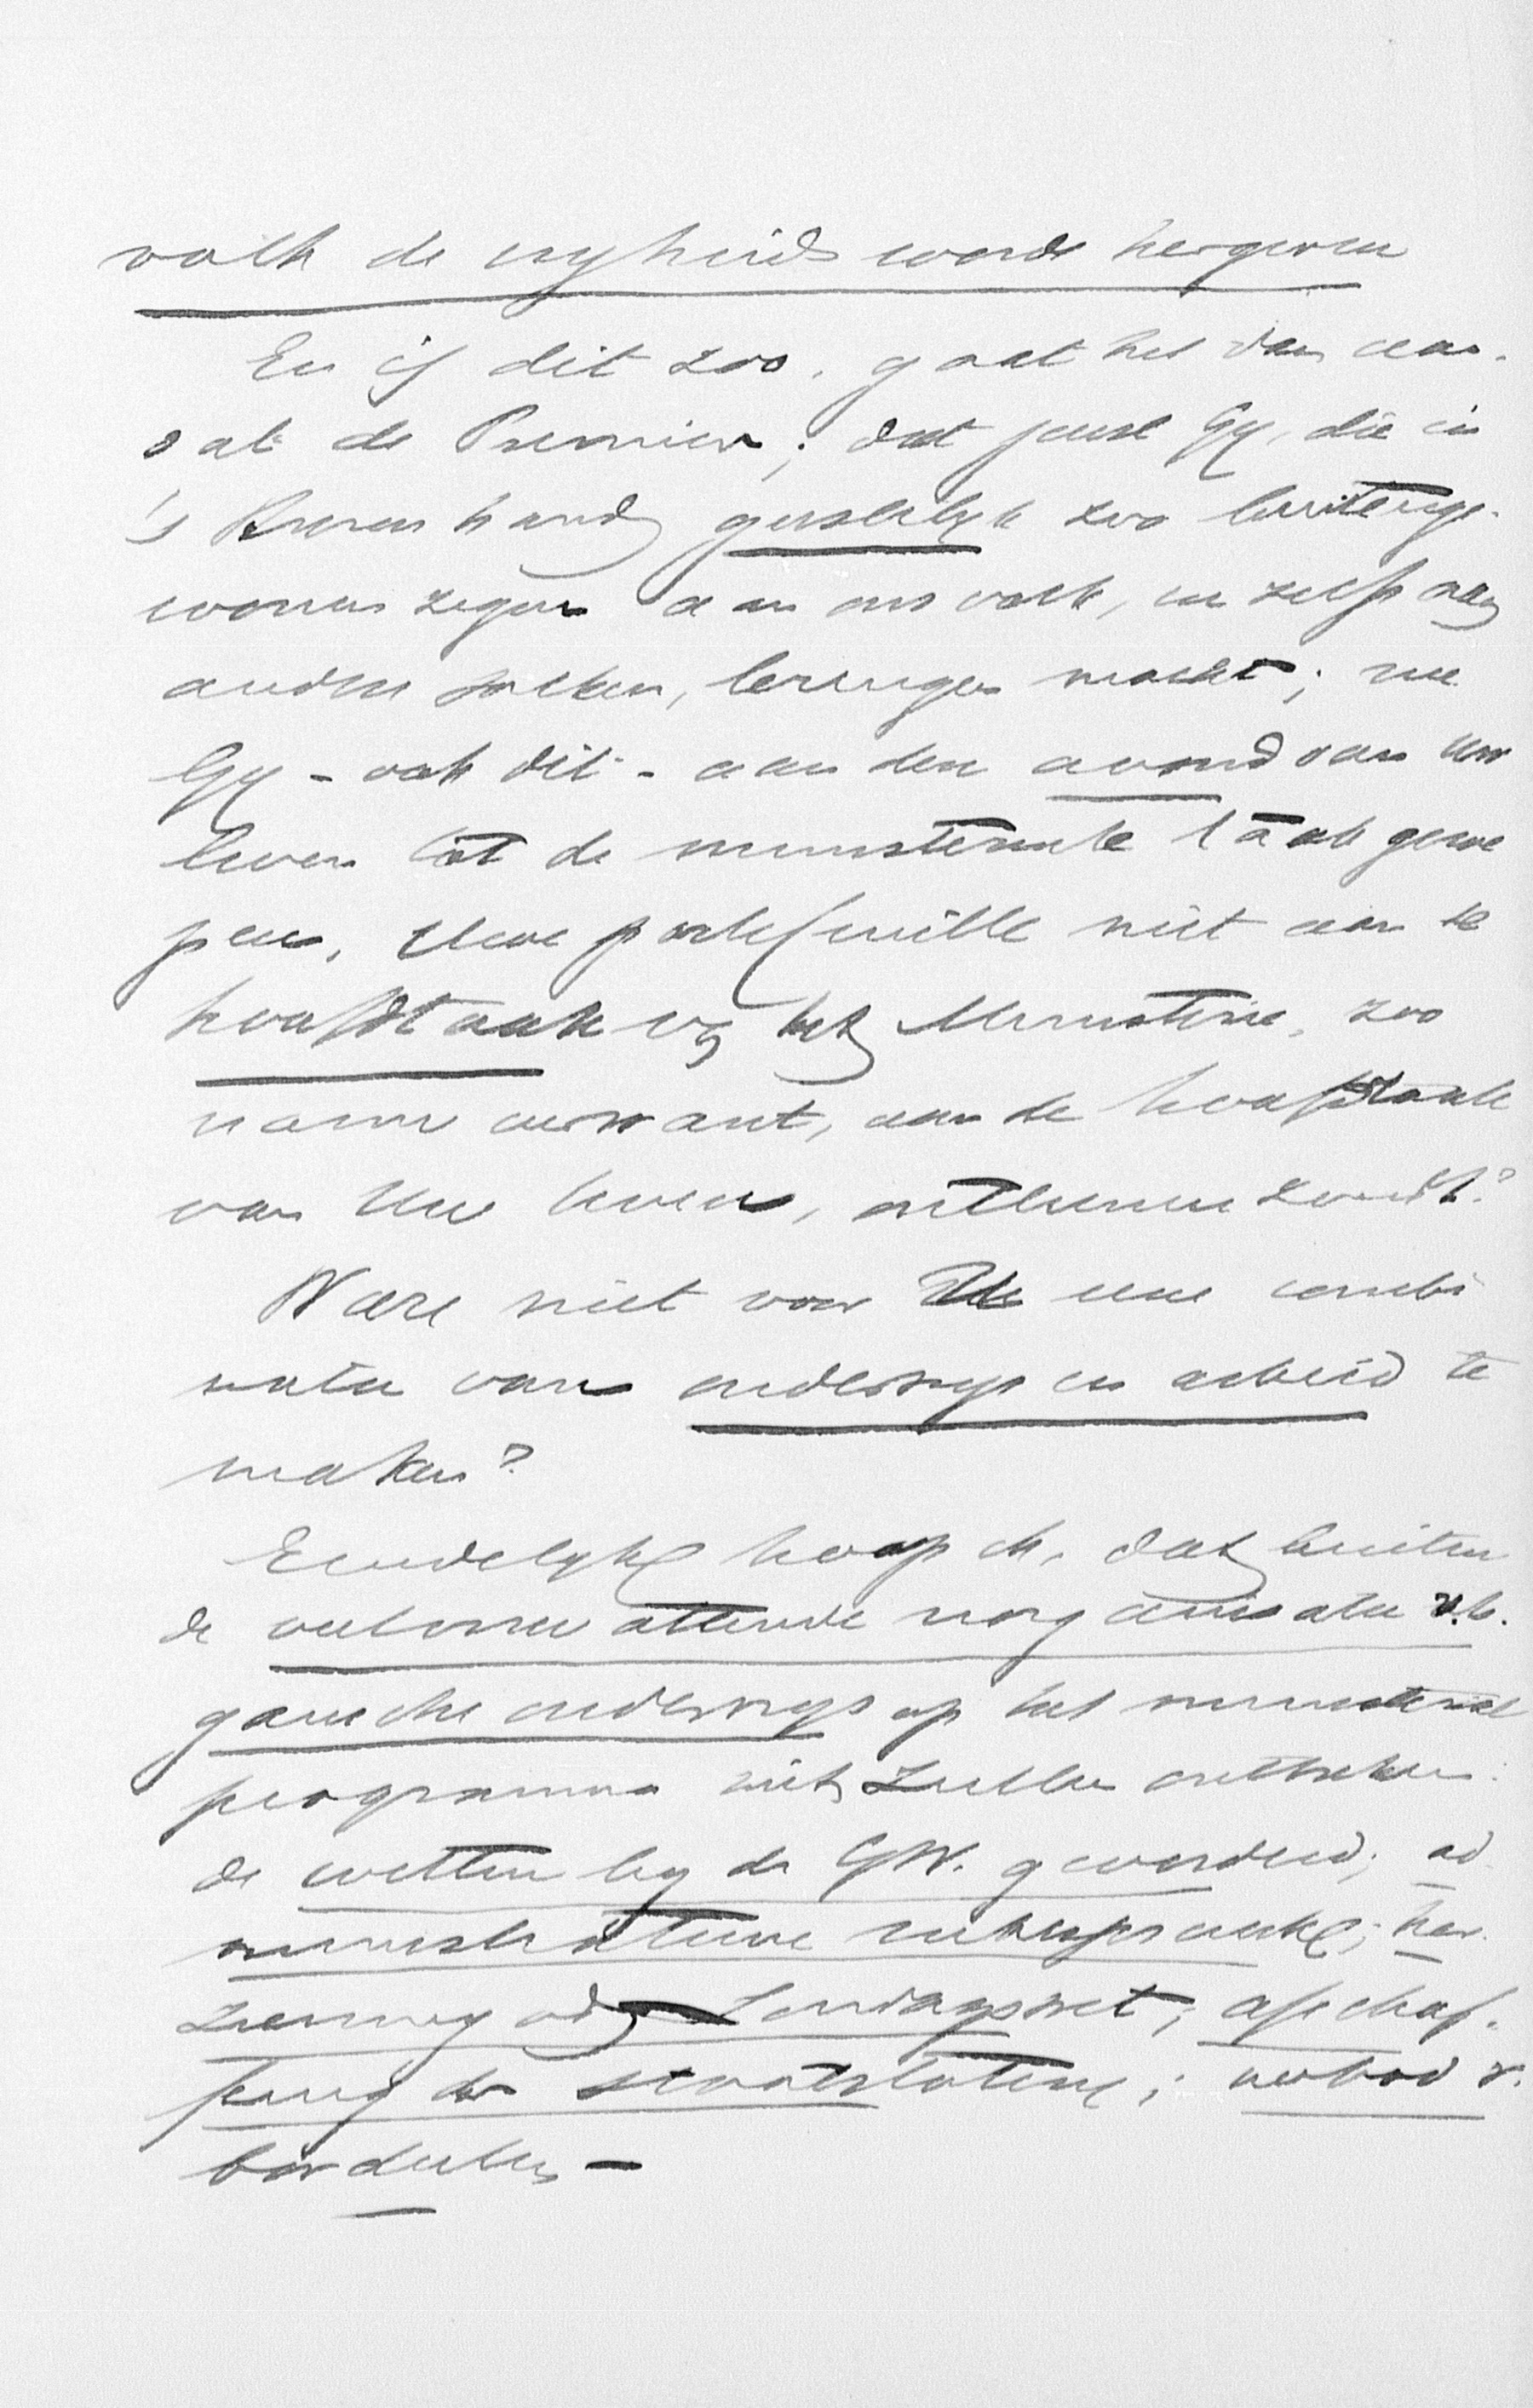 volk de vryheid worde hergeven
En is dit zoo, gaat het dan aan,
dat de Premier; dat juist Gy, die in
's Heeren hand geestelyk zoo buitenge-
wonen zegen aan ons volk, en zelfs aan
andere volken, brengen mocht; nu
Gy - ook dit - aan den avond van Uw
leven tot de ministerieele taak geroe
pen, Uwe portefeuille niet aan de
hoofdtaak v/h het Ministerie, zoo
nauw verwant, aan de hoofdtaak
van Uw leven, ontleenen zoudt?
Ware niet voor U eene combi
natie van onderwys en arbeid te
maken?
Eindelyk hoop ik, dat buiten
de veelomvattende reorganisatie v.h.
gansche onderwys op het ministerieel
programma niet zullen ontbreken:
de wetten by de GW. gevorderd; ad
ministratieve rechtspraak; her
ziening v/d Zondagswet; afschaf-
fing der staatsloterij; verbod v.
bordeelen -